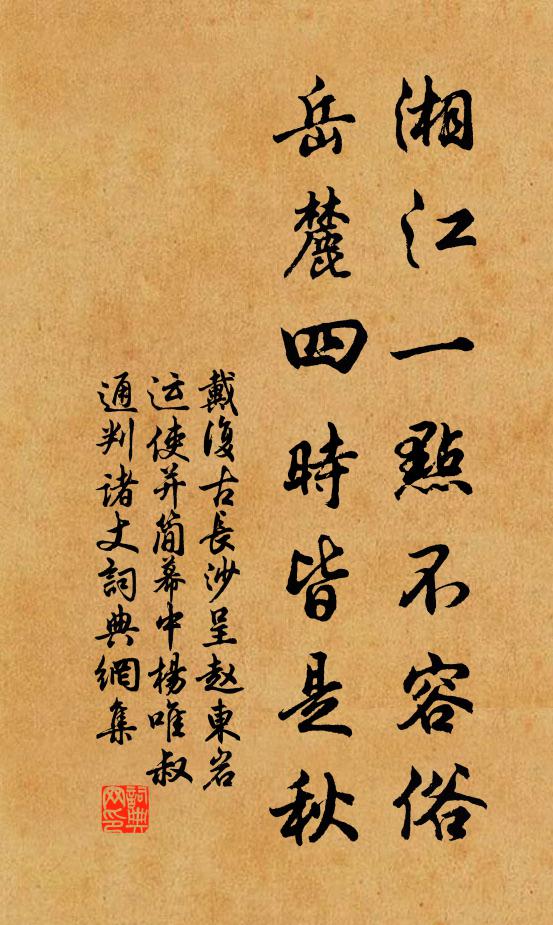 湘江一點不容俗
岳麓四時皆是秋
戴復古長沙呈赵東岩
运使并简幕中楊唯叔
通判诸丈詞典網集
詞典网印